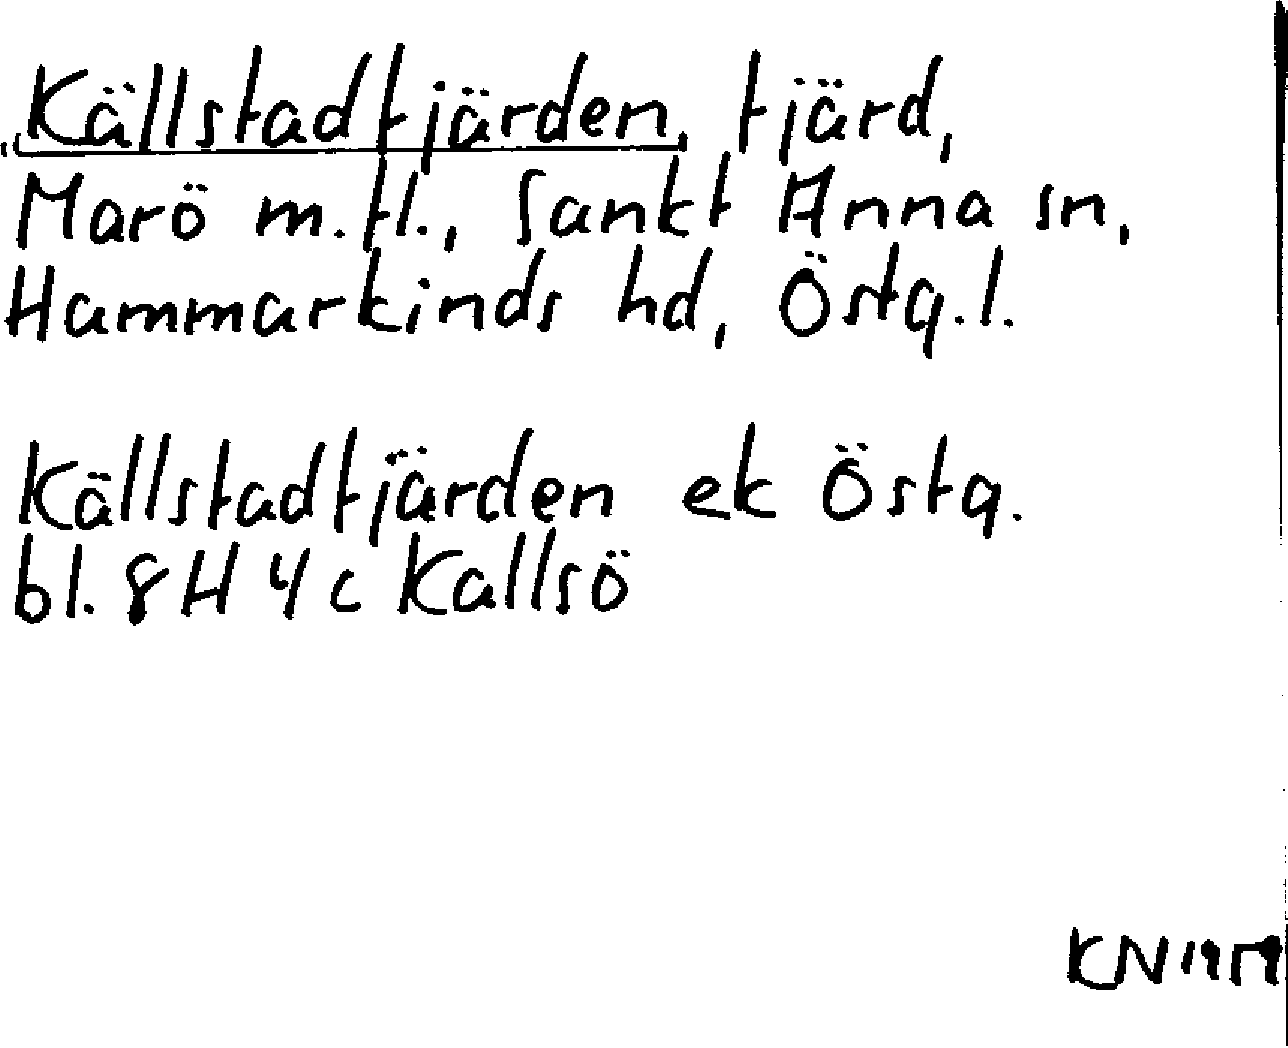 Källstadfjärden, fjärd,
Marö m.fl., Sankt Anna sn,
Hammarkinds hd, Östg.l.
Källstadfjärden ek Östg.
bl. 8H 4c Kallsö
KN